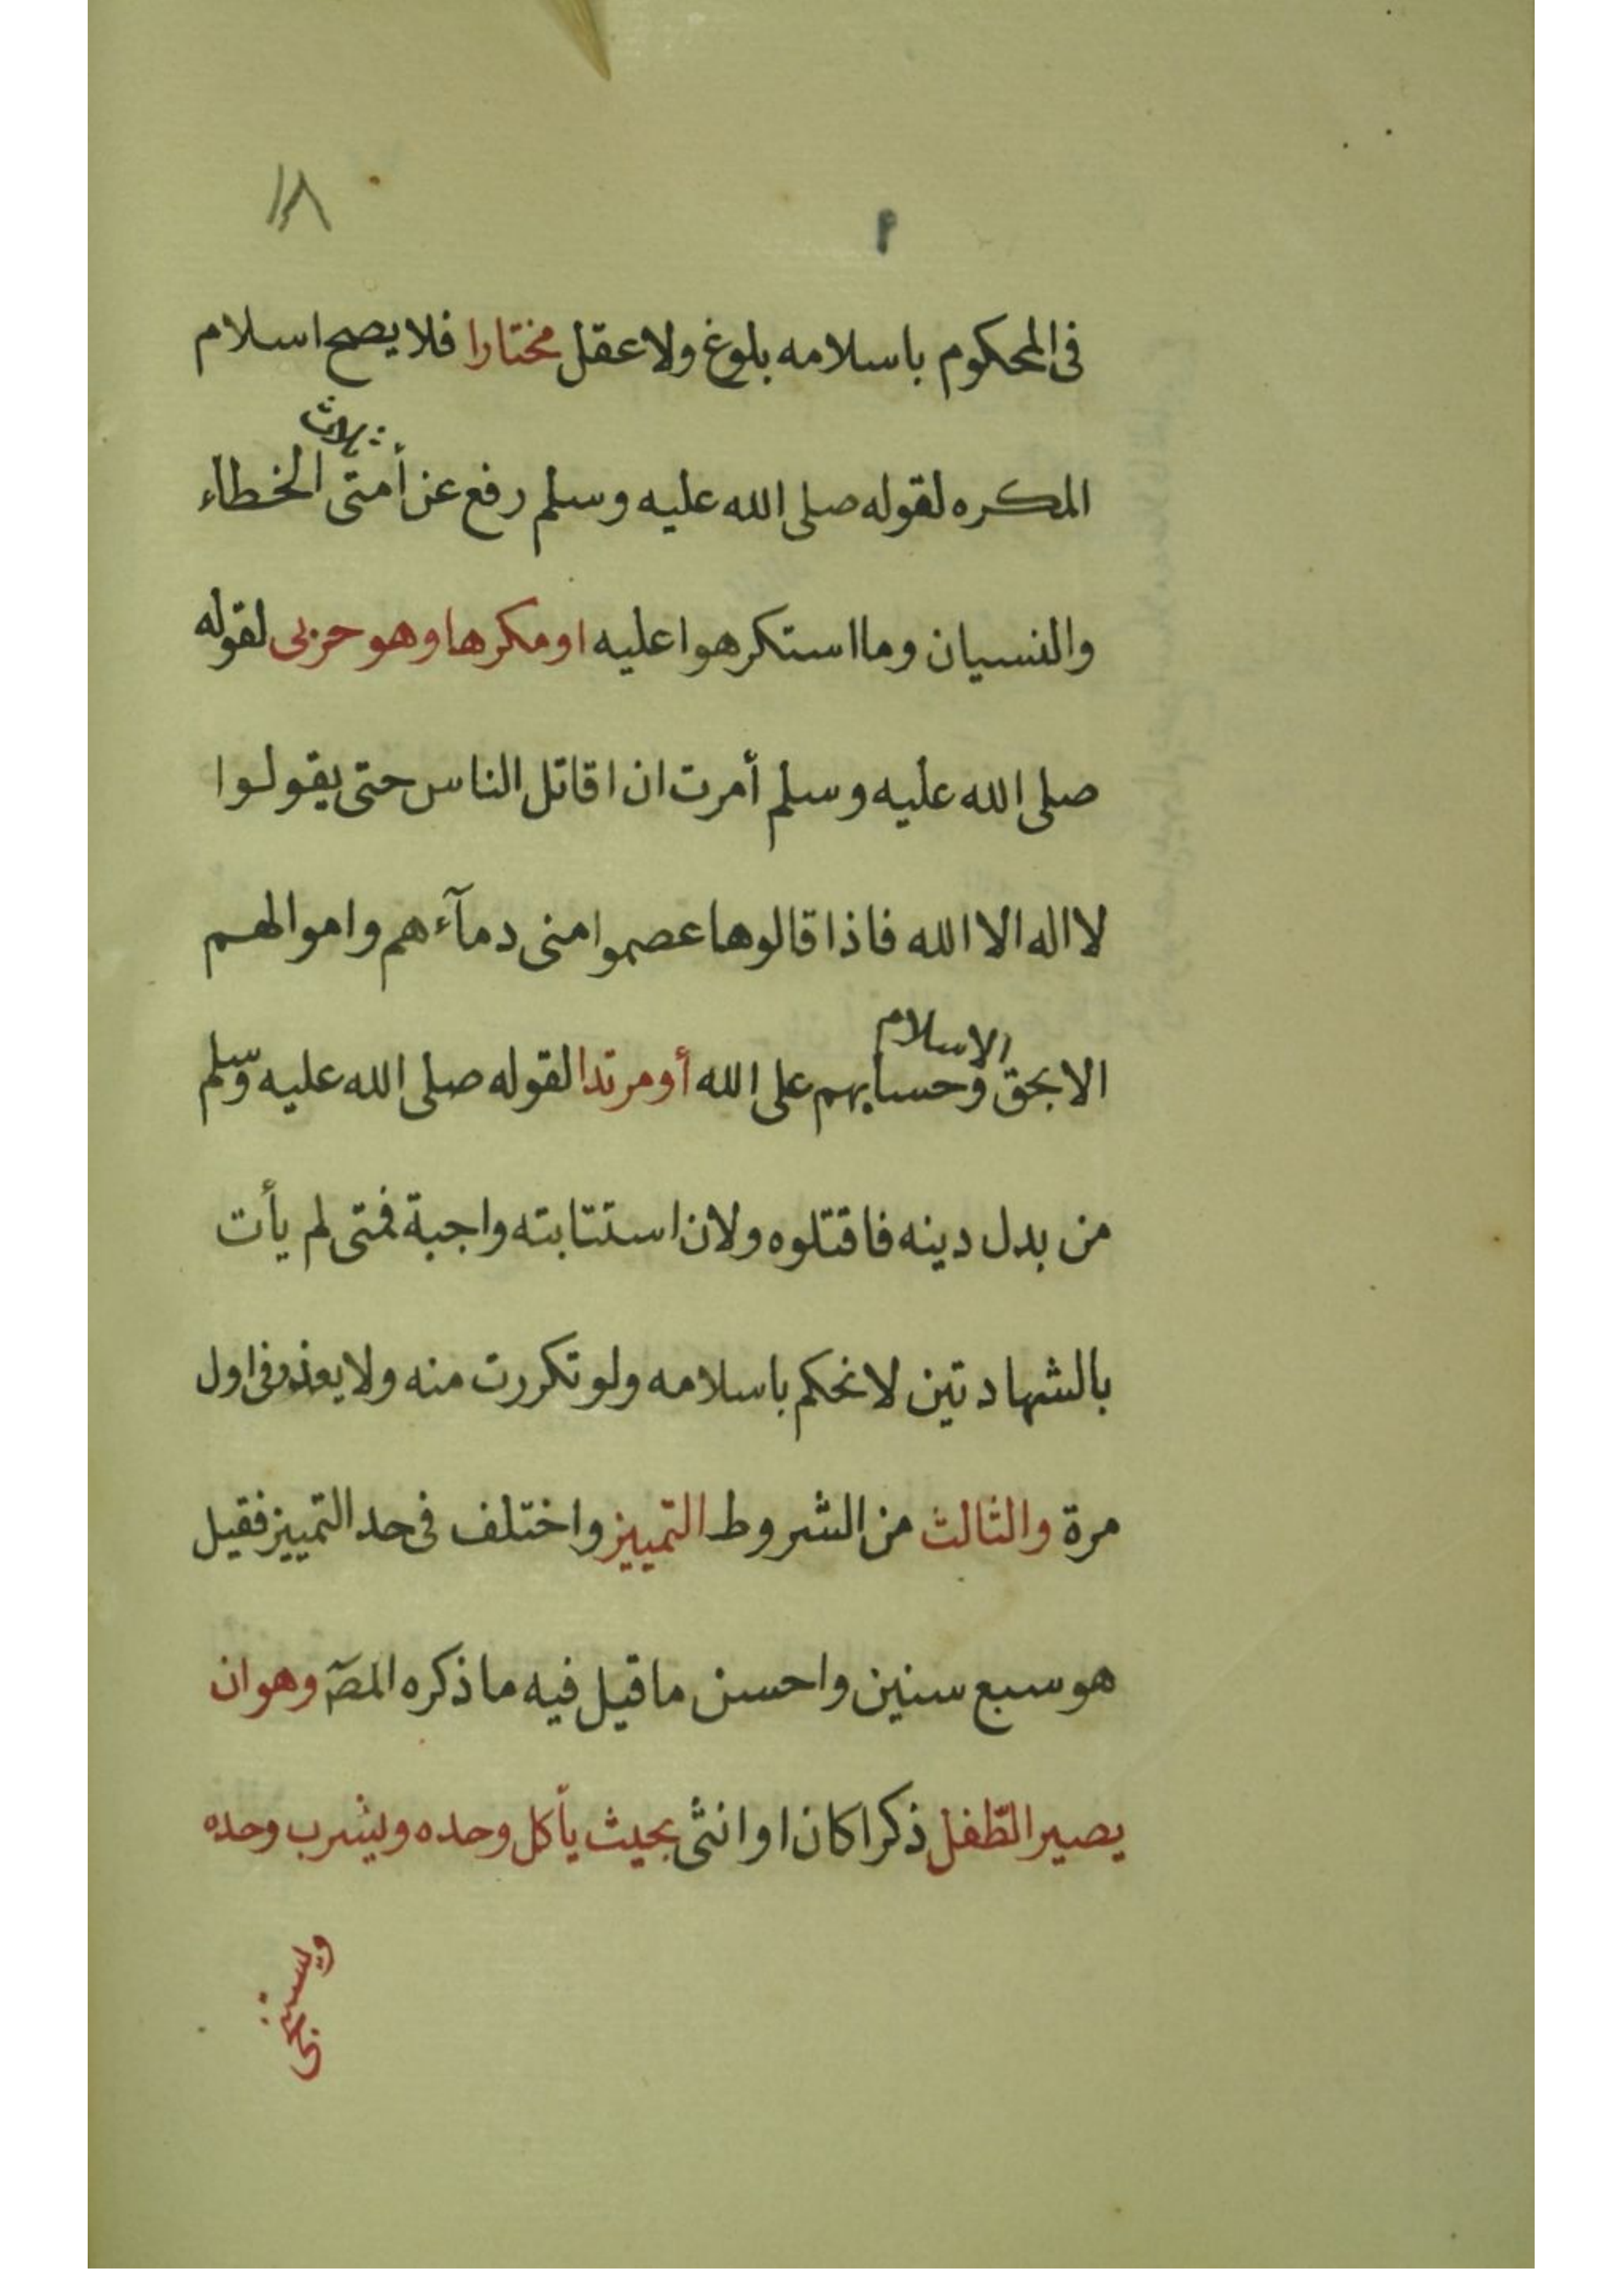 ١٨
في المحكوم باسلامه بلوغ ولا عقل مختارا فلا يصح اسلام
ثلاث
المكره لقوله صلى الله عليه وسلم رفع عن أمتى الخطاء
والنسيان وما استكرهوا عليه او مكرها وهو حربى لقوله
صلى الله عليه وسلم أمرت ان اقاتل الناس حتى يقولوا
لا اله الا الله فاذا قالوها عصموا منى دمآءهم واموالهم
الاسلام
الا بحق وحسابهم على الله أو مرتدا لقوله صلى الله عليه وسلم
من بدل دينه فاقتلوه ولان استتابته واجبة فمتى لم يأت
بالشهادتين لا نحكم باسلامه ولو تكررت منه ولا يعذر فى اول
مرة والثالث من الشروط التمييز واختلف فى حد التمييز فقيل
هو سبع سنين واحسن ما قيل فيه ما ذكره المصٓ وهو ان
يصير الطّفل ذكرا كان او انثى بحيث يأكل وحده ويشرب وحده
ويستنجى